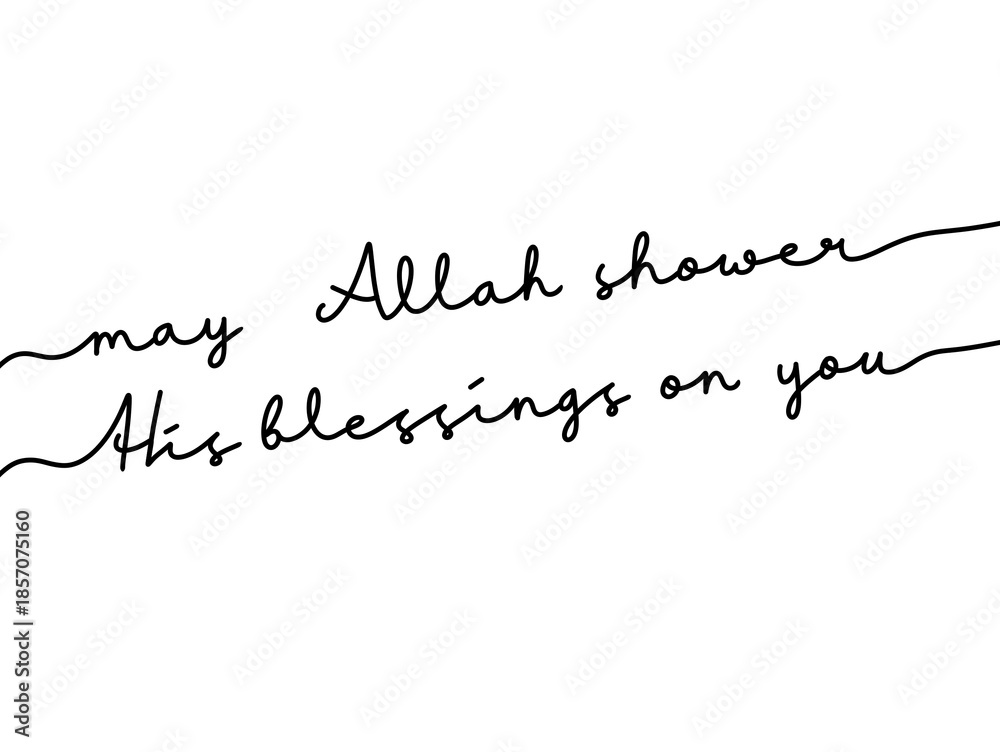 may Allah shower
His blessings on you
Adobe Stock | #1857075160